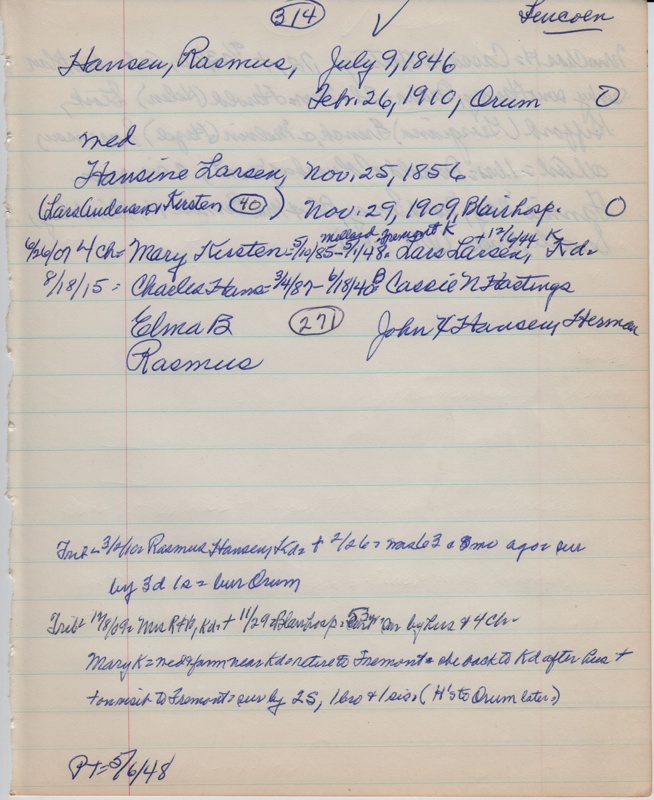 314
Hansen, Rasmus, July 9, 1846
Feb. 26, 1910, Orum O
med
Hansine Larsen, Nov. 25, 1856
(Lars Andersen & Kirsten 40) Nov. 29, 1909, Blair hosp. O
6/26/07 4 Ch = Mary Kirsten = 5/10/85 - 5/1/48 = Lars Larsen, Kd =
Millard, Fremont K + 12/6/44 K
8/18/15 = Charles Hans = 3/4/87 - 6/18/40 = B Cassie N Hastings
Elma B 271 John H Hansen, Herman
Rasmus
Trib = 3/2/10 = Rasmus Hansen, Kd = + 2/26 = was 63 = 3 mo ago = sur
by 3 d 1 s = bur Orum
Trib = 12/8/09 = Mrs R H, Kd = + 11/29 = Blair hosp = 53 = sur by hus & 4 Ch =
Mary K = med = farm near Kd = retire to Fremont = she back to Kd after hus +
+ on visit to Fremont = sur by 2 S, 1 bro & 1 sis = (H's to Orum later =)
PT = 5/6/48